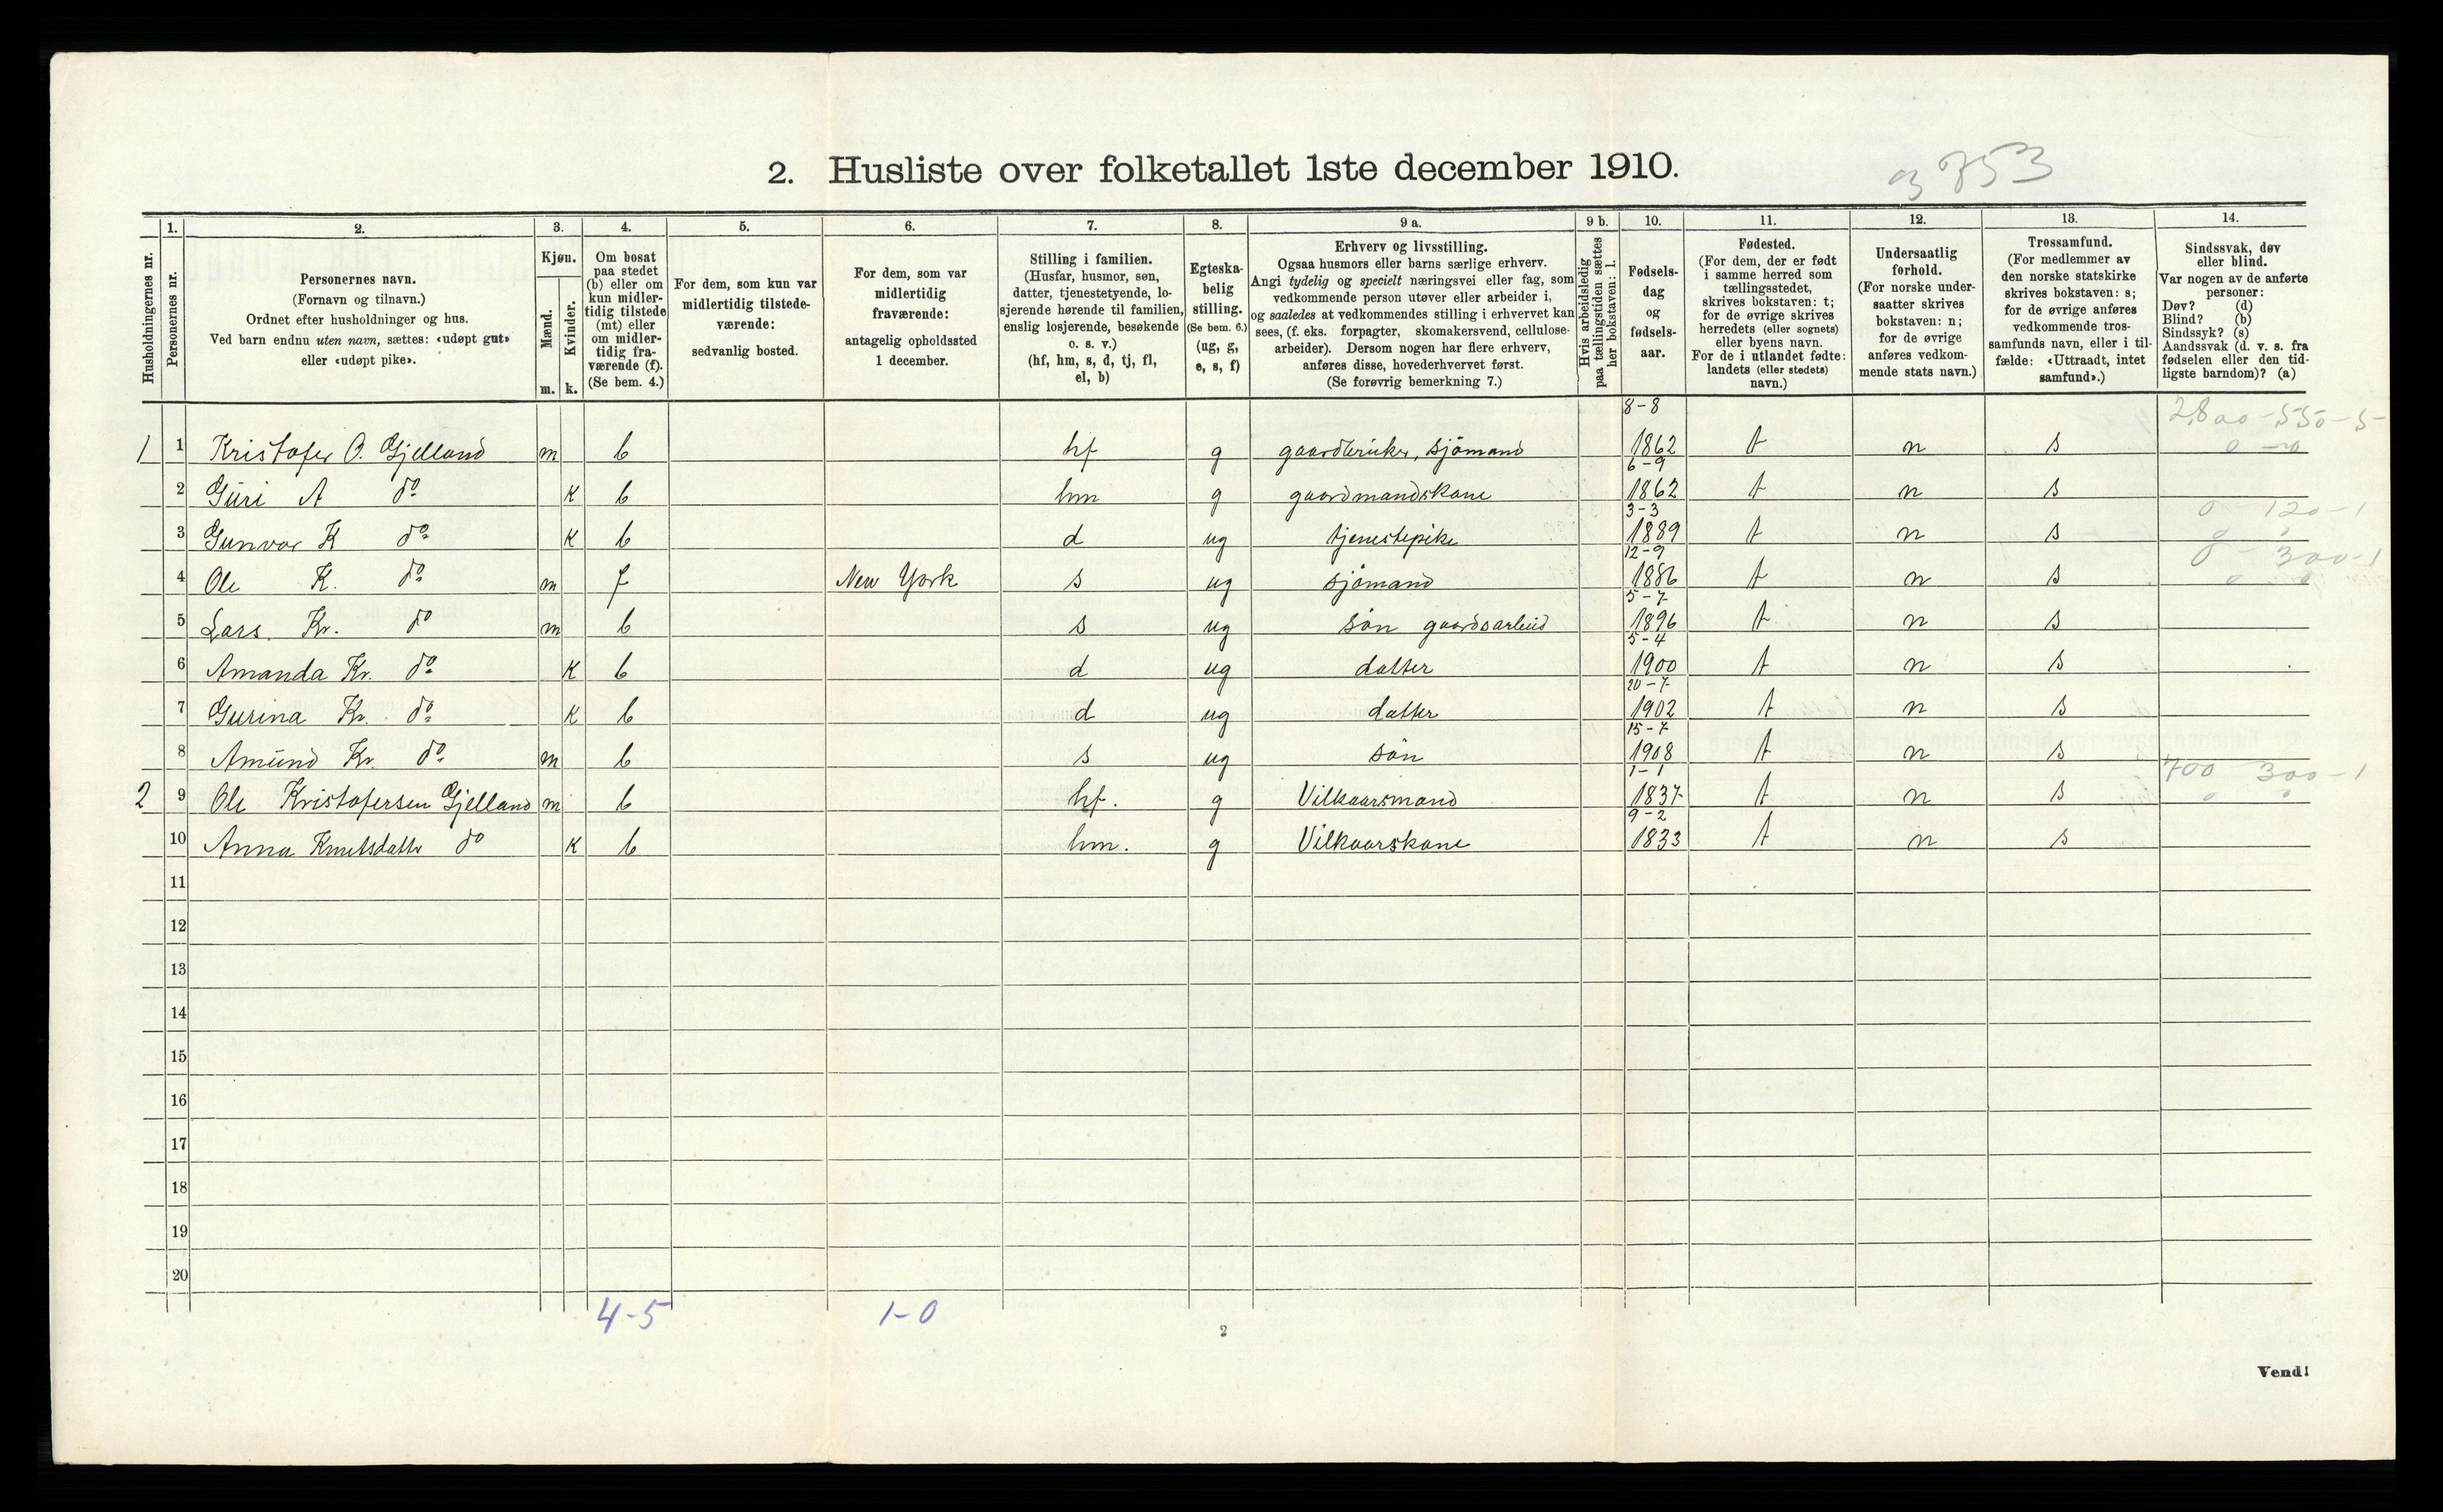 2. Husliste over folketallet 1ste december 1910.
3753
Husholdningernes nr.
1.
Personernes nr.
2.
Personernes navn.
(Fornavn og tilnavn.)
Ordnet efter husholdninger og hus.
Ved barn endnu uten navn, sættes: «udøpt gut»
eller «udøpt pike».
3.
Kjøn.
Mænd.
Kvinder.
m. k.
4.
Om bosat
paa stedet
(b) eller om
kun midler-
tidig tilstede
(mt) eller
om midler-
tidig fra-
værende (f).
(Se bem. 4.)
5.
For dem, som kun var
midlertidig tilstede-
værende:
sedvanlig bosted.
6.
For dem, som var
midlertidig
fraværende:
antagelig opholdssted
1 december.
7.
Stilling i familien.
(Husfar, husmor, søn,
datter, tjenestetyende, lo-
sjerende hørende til familien,
enslig losjerende, besøkende
o. s. v.)
(hf, hm, s, d, tj, fl,
el, b)
8.
Egteska-
belig
stilling.
(Se bem. 6.)
(ug, g,
e, s, f)
9 a.
Erhverv og livsstilling.
Ogsaa husmors eller barns særlige erhverv.
Angi tydelig og specielt næringsvei eller fag, som
vedkommende person utøver eller arbeider i,
og saaledes at vedkommendes stilling i erhvervet kan
sees, (f. eks. forpagter, skomakersvend, cellulose-
arbeider). Dersom nogen har flere erhverv,
anføres disse, hovederhvervet først.
(Se forøvrig bemerkning 7.)
9 b.
Hvis arbeidsledig
paa tællingstiden sættes
her bokstaven: l.
10.
Fødsels-
dag
og
fødsels-
aar.
11.
Fødested.
(For dem, der er født
i samme herred som
tællingsstedet,
skrives bokstaven: t;
for de øvrige skrives
herredets (eller sognets)
eller byens navn.
For de i utlandet fødte:
landets (eller stedets)
navn.)
12.
Undersaatlig
forhold.
(For norske under-
saatter skrives
bokstaven: n;
for de øvrige
anføres vedkom-
mende stats navn.)
13.
Trossamfund.
(For medlemmer av
den norske statskirke
skrives bokstaven: s;
for de øvrige anføres
vedkommende tros-
samfunds navn, eller i til-
fælde: «Uttraadt, intet
samfund».)
14.
Sindssvak, døv
eller blind.
Var nogen av de anførte
personer:
Døv? (d)
Blind? (b)
Sindssyk? (s)
Aandssvak (d. v. s. fra
fødselen eller den tid-
ligste barndom)? (a)
8-8 2800-550-5
1 1 Kristofer O. Gjelland m b hf g gaardbruker, sjömand 1862 t n s
6-9
2 Guri A do k b hm g gaardmandskone 1862 t n s
3-3 0 120-1
3 Gunvor K do k b d ug tjenestepike 1889 t n s
12-9 0 300-1
4 Ole K. do m f New York s ug sjömand 1886 t n s
5-7
5 Lars Kr. do m b s ug sön gaardsarbeid 1896 t n s
5-4
6 Amanda Kr. do k b d ug datter 1900 t n s
20-7
7 Gurina Kr. do k b d ug datter 1902 t n s
15-7
8 Amund Kr. do m b s ug sön 1908 t n s
1-1 700 300-1
2 9 Ole Kristofersen Gjelland m b hf. g Vilkaarsmand 1837 t n s
9-2
10 Anna Knutsdatter do k b hm. g Vilkaarskone 1833 t n s
11
12
13
14
15
16
17
18
19
20
4-5 1-0
2
Vend!